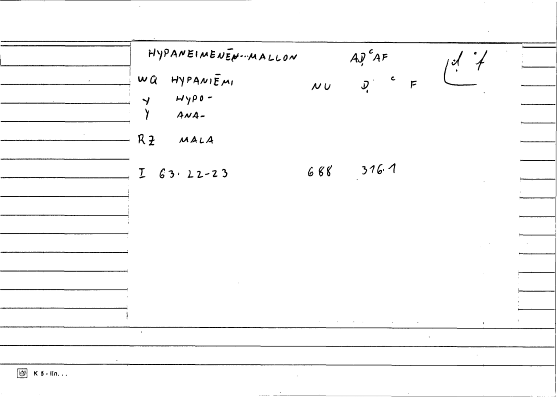 HYPANEIMENĒN...MALLON AḌᶜAF
WQ HYPANIĒMI NU Ḍ ᶜ F
Y HYPO-
Y ANA-
RẒ MALA
I 63. 22-23 688 316.1
K 5 - lin...